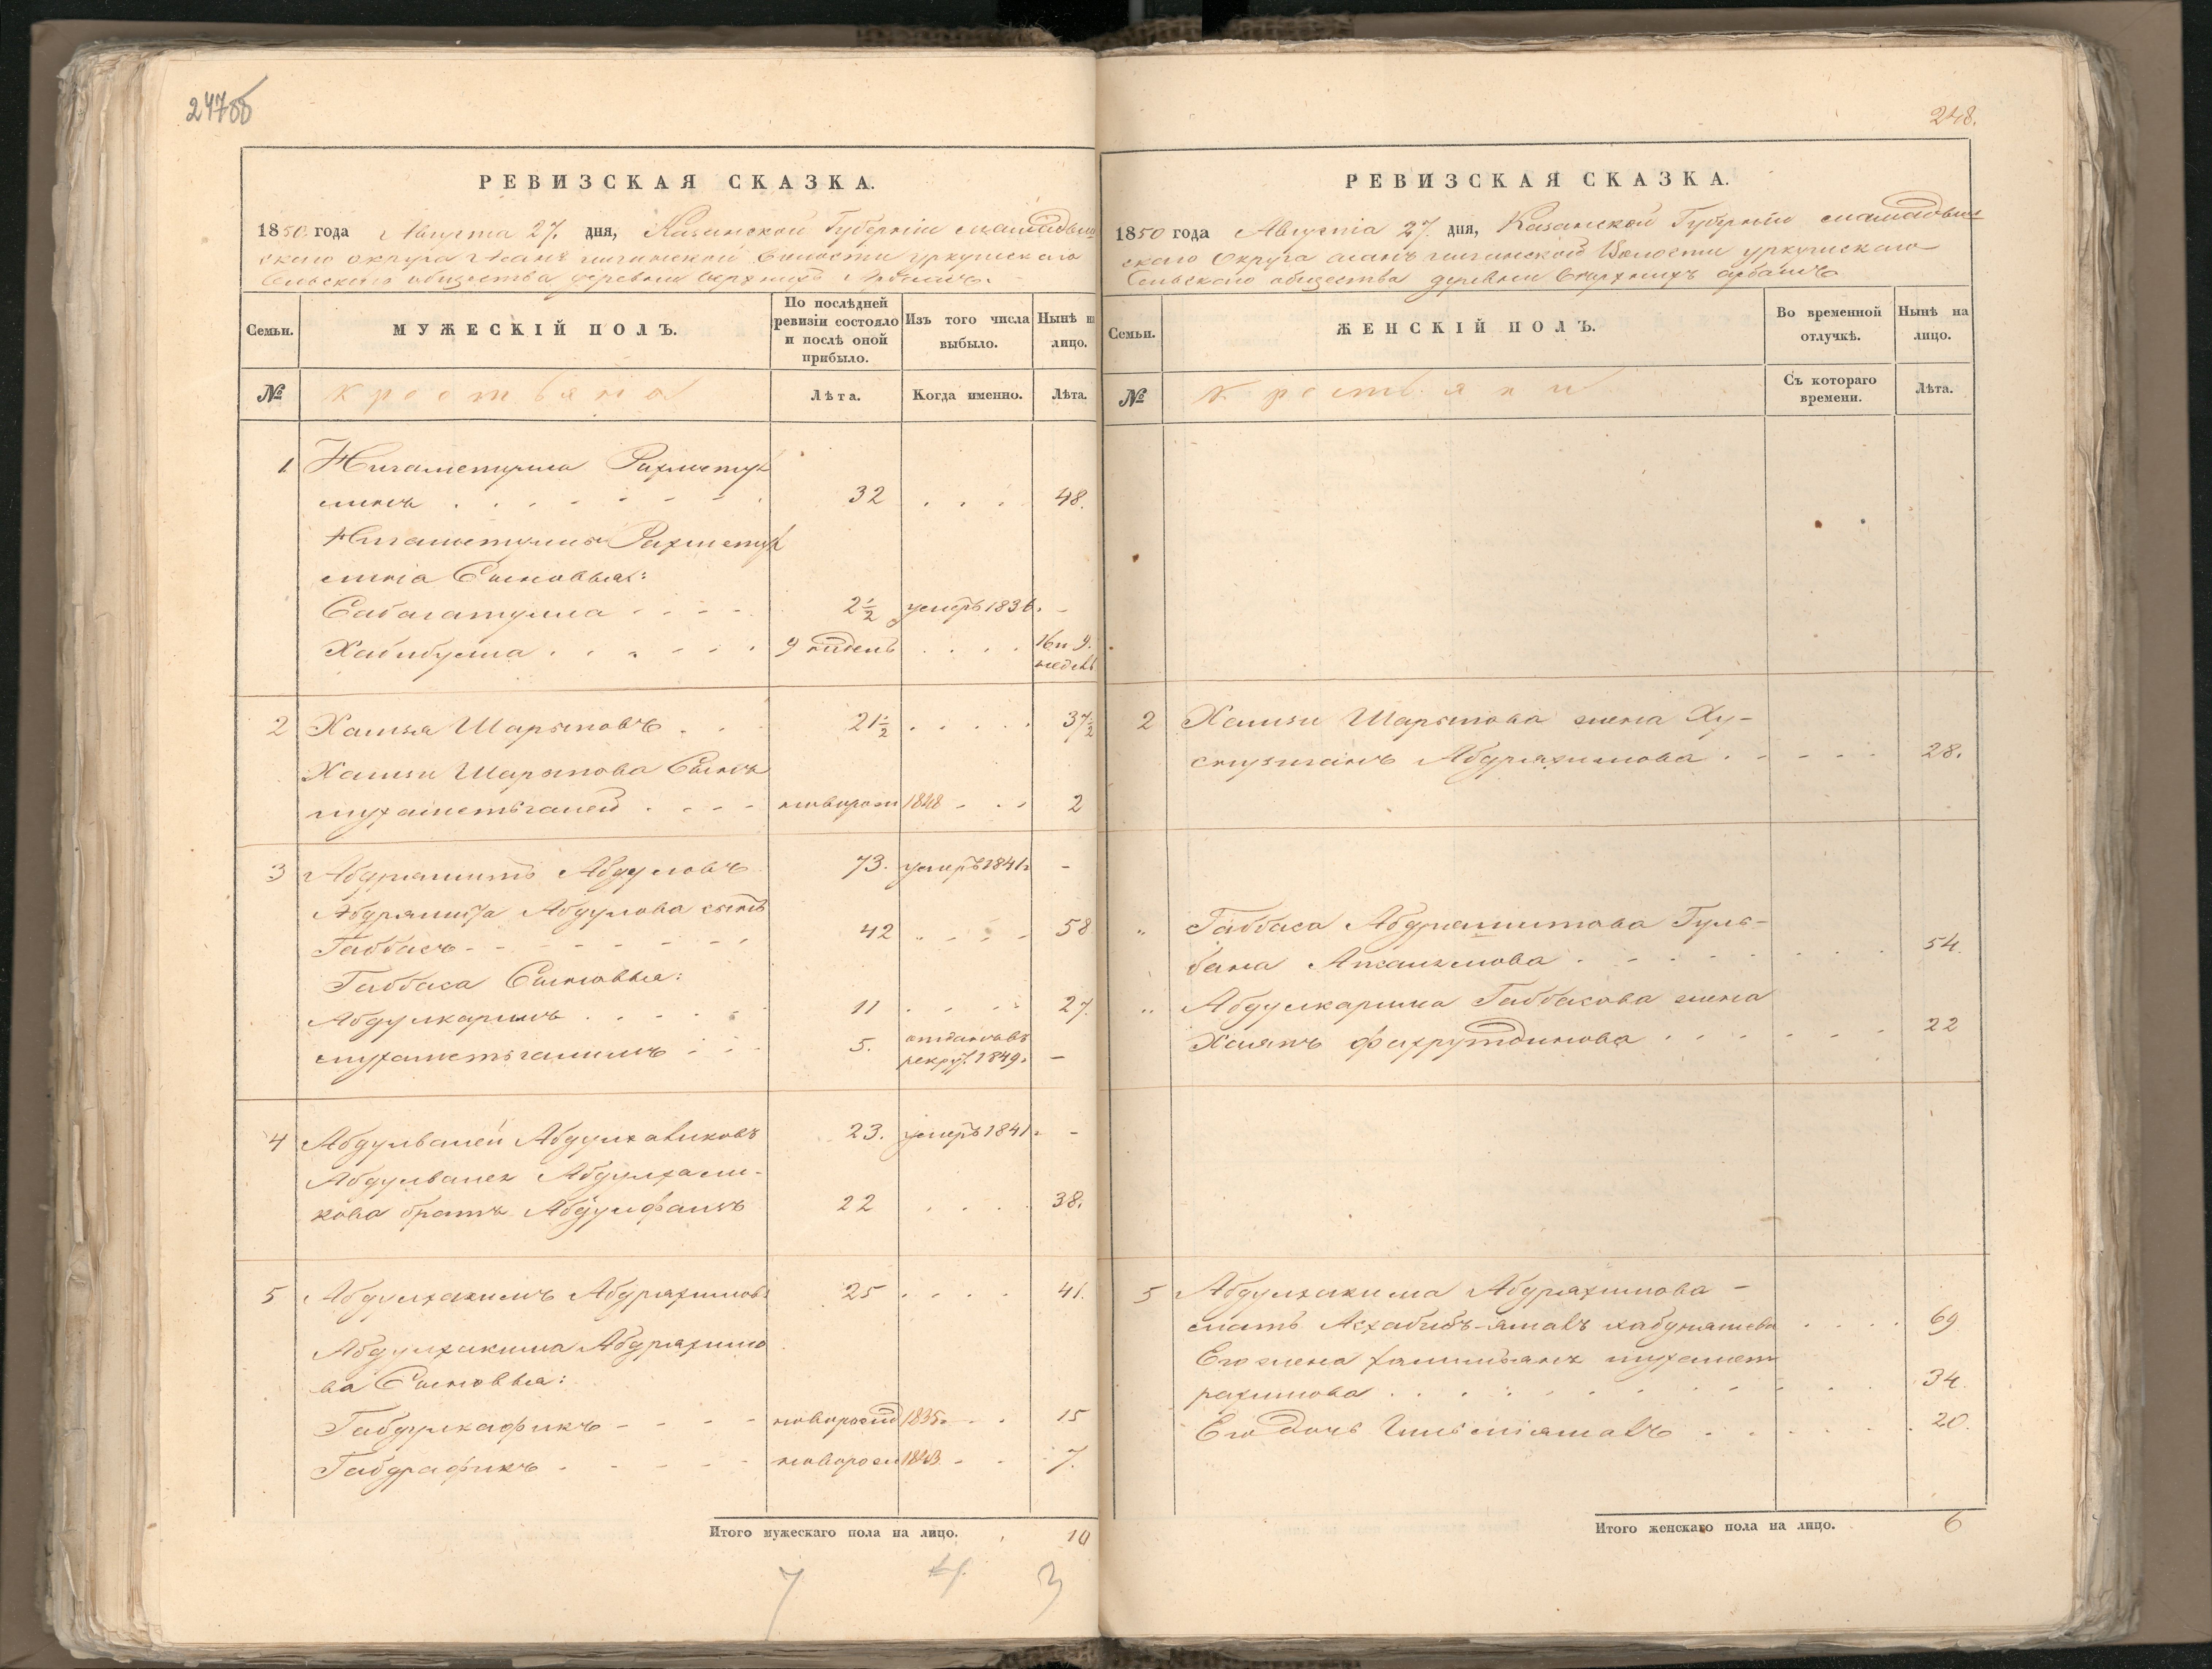 247об
РЕВИЗСКАЯ СКАЗКА.
1850 года Августа 27. дня, Казанской Губерніи мамадыш
скаго округа волости уркушскаго
Сельскаго общества деревни верхнихъ
Семьи.
МУЖЕСКІЙ ПОЛЪ.
По послѣдней ревизіи состояло и послѣ оной прибыло.
Изъ того числа выбыло.
Нынѣ на лицо.
№
крестьяна
Лѣта.
Когда именно.
Лѣта.
1 Нигаметулла Рахметул
линъ 32 48.
Нигаметуллы Рахметул
лина Сыновья:
Сабагатулла 2 1/2 умеръ 1836. -
Хабибулла 9 недель 16 и 9. недель
2 Хамзя Шарыповъ 21 1/2 37 1/2
Хамзи Шарыпова Сынъ
мухаметьгалей новорож 1848 2
3 Абдряшитъ Абдуловъ 73. умеръ 1841г -
Абдряшита Абдулова сынъ
Габбасъ 42 58
Габбаса Сыновья:
Абдулкаримъ 11 27.
мухаметьгалимъ 5. отданъ въ рекру. 1849г -
4 Абдулвалей Абдулхаликовъ 23. умеръ 1841г -
Абдулвалея Абдулхали-
кова братъ 22 38.
5 Абдулхакимъ Абдряхимовъ 25 41.
Абдулхакима Абдряхимо
ва Сыновья:
Габдулкафикъ новорожд 1835г 15
Габдрафикъ новорож 1843 7.
Итого мужескаго пола на лицо. 10
7 4. 3
248.
РЕВИЗСКАЯ СКАЗКА.
1850 года Августа 27. дня, Казанской Губерніи мамадыш
скаго Округа Волости уркушскаго
Сельскаго общества деревни верхнихъ
Семьи.
ЖЕНСКІЙ ПОЛЪ.
Во временной отлучкѣ.
Нынѣ на лицо.
№
крестьяни
Съ котораго времени.
Лѣта.
2 Хамзи Шарыпова жена Ху-
Абдряхимова 28.
" Габбаса Абдряшитова Гуль-
бана 54.
" Абдулкарима Габбасова жена
Фахрутдинова 22
5 Абдулхакима Абдряхимова -
мать 69
Его жена мухамет
рахимова 34.
Его дочь 20.
Итого женскаго пола на лицо. 6